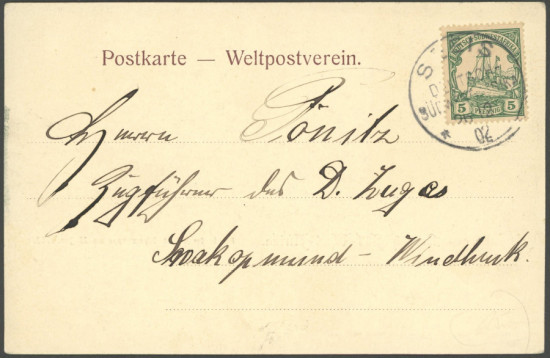 Postkarte — Weltpostverein.
5 PFENNIG 5
02
Herrn Pönitz
Zugführer des D. Zuges
Swakopmund - Windhuk.